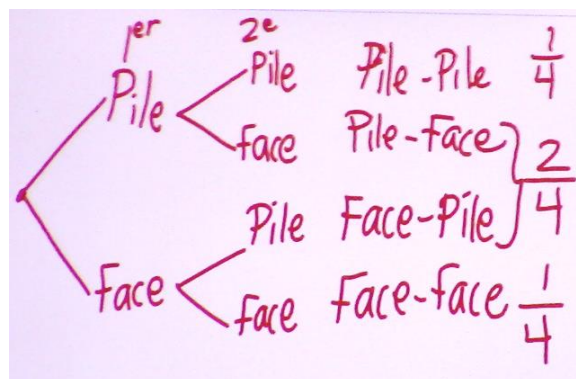 1er 2e
Pile Pile Pile-Pile 1/4
Face Pile-Face 2/4
Pile Face-Pile
Face Face Face-face 1/4